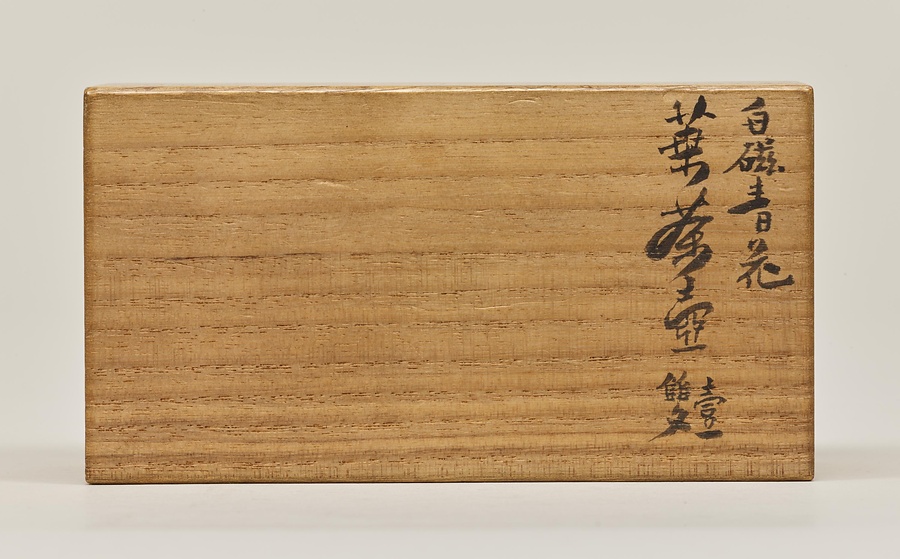 白磁青花
葉茶壺
壹
雙